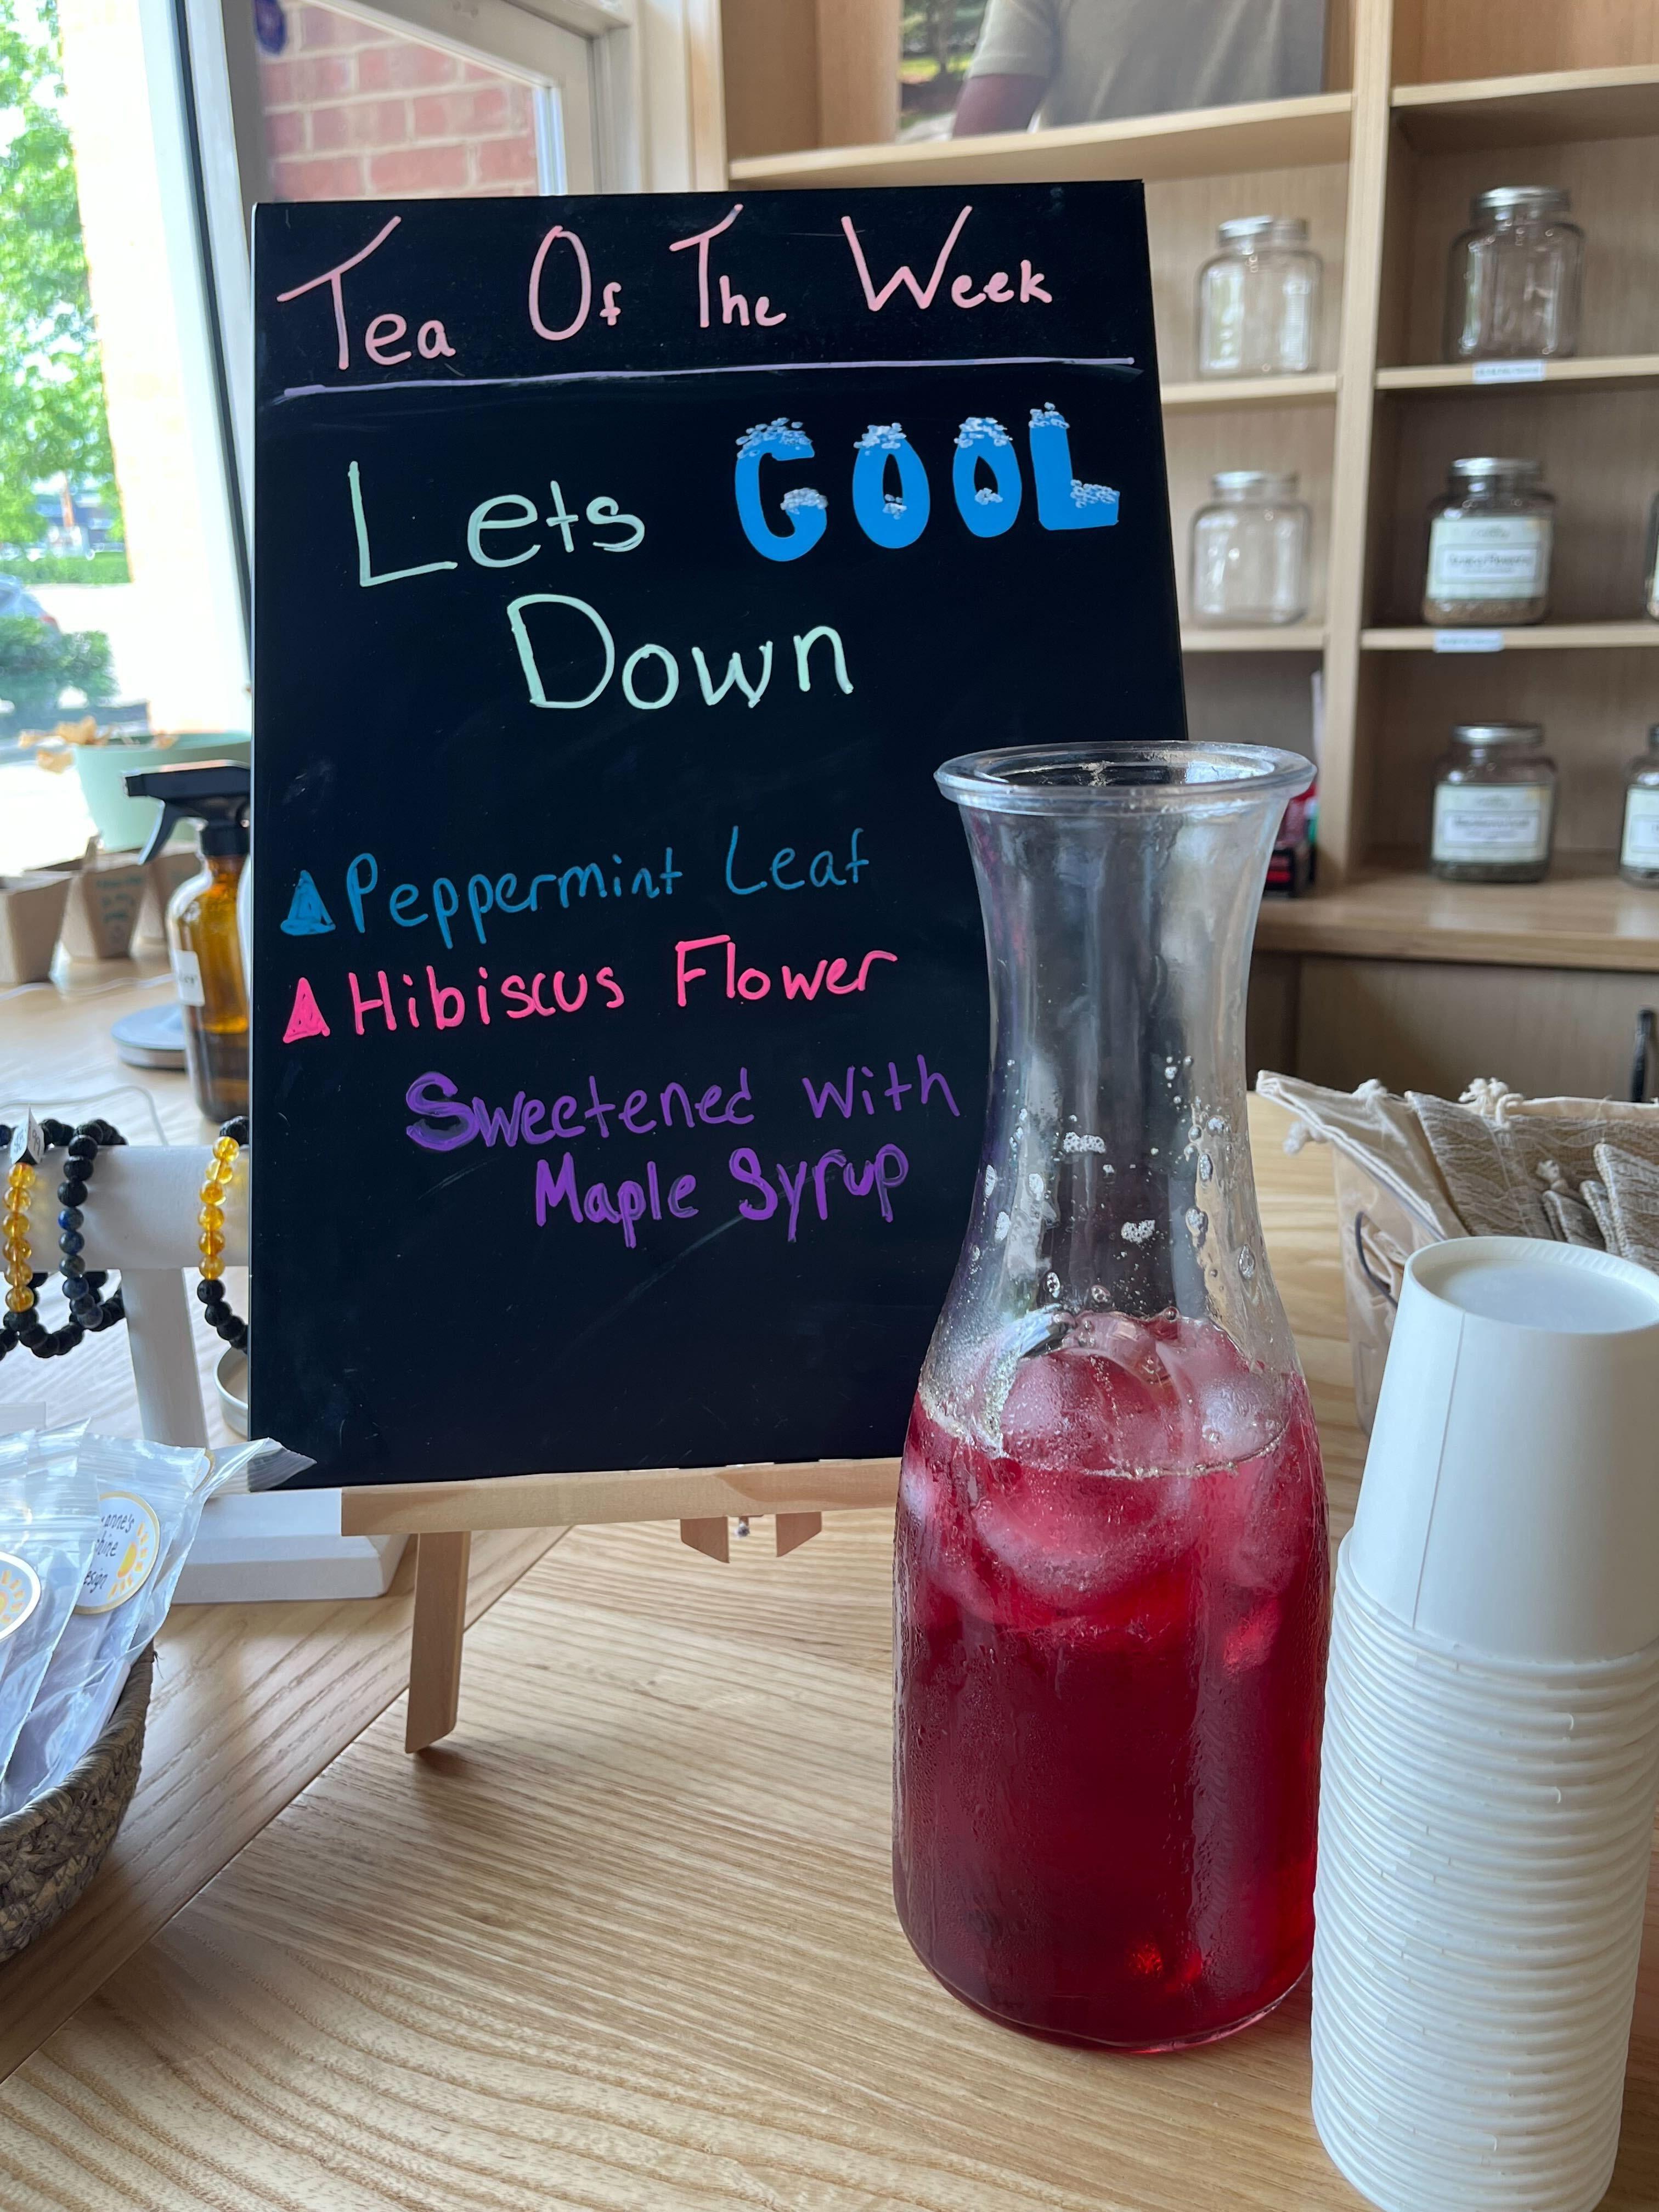 Tea Of The Week
Lets COOL
Down
Peppermint Leaf
Hibiscus Flower
Sweetened With
Maple Syrup